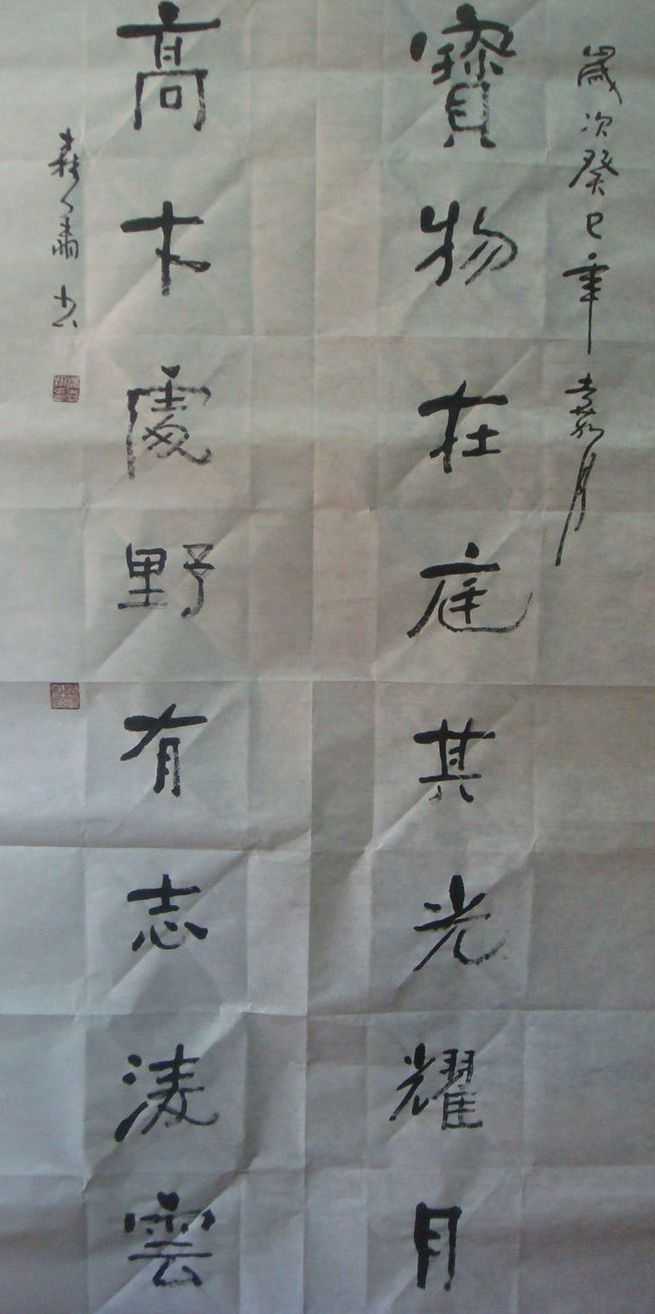 歲次癸巳年嘉月
寶物在庭其光耀月
高木處野有志淩雲
书